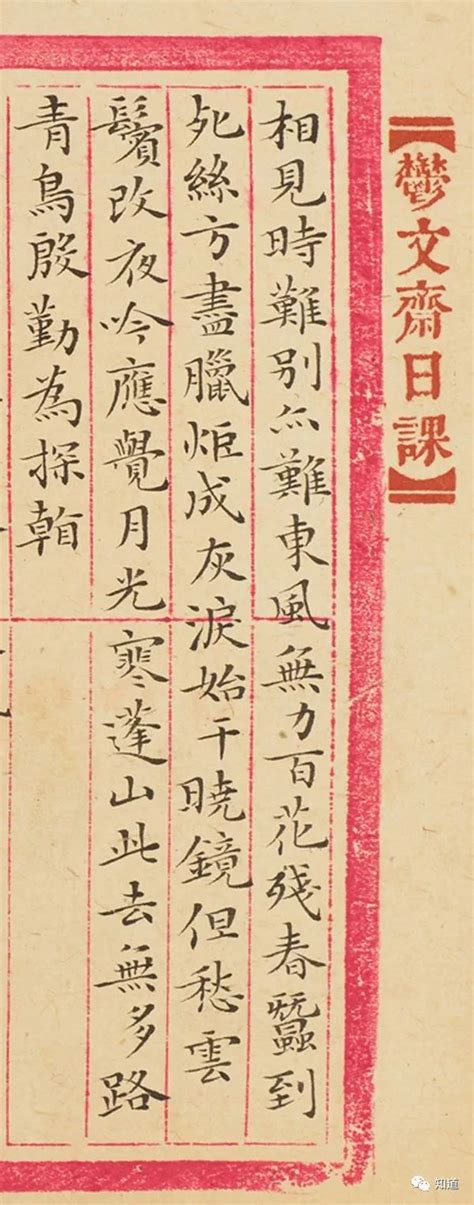 【鬱文齋日課】
相見時難別亦難東風無力百花殘春蠶到
死絲方盡臘炬成灰淚始干曉鏡但愁雲
鬢改夜吟應覺月光寒蓬山此去無多路
青鳥殷勤為探看
知道